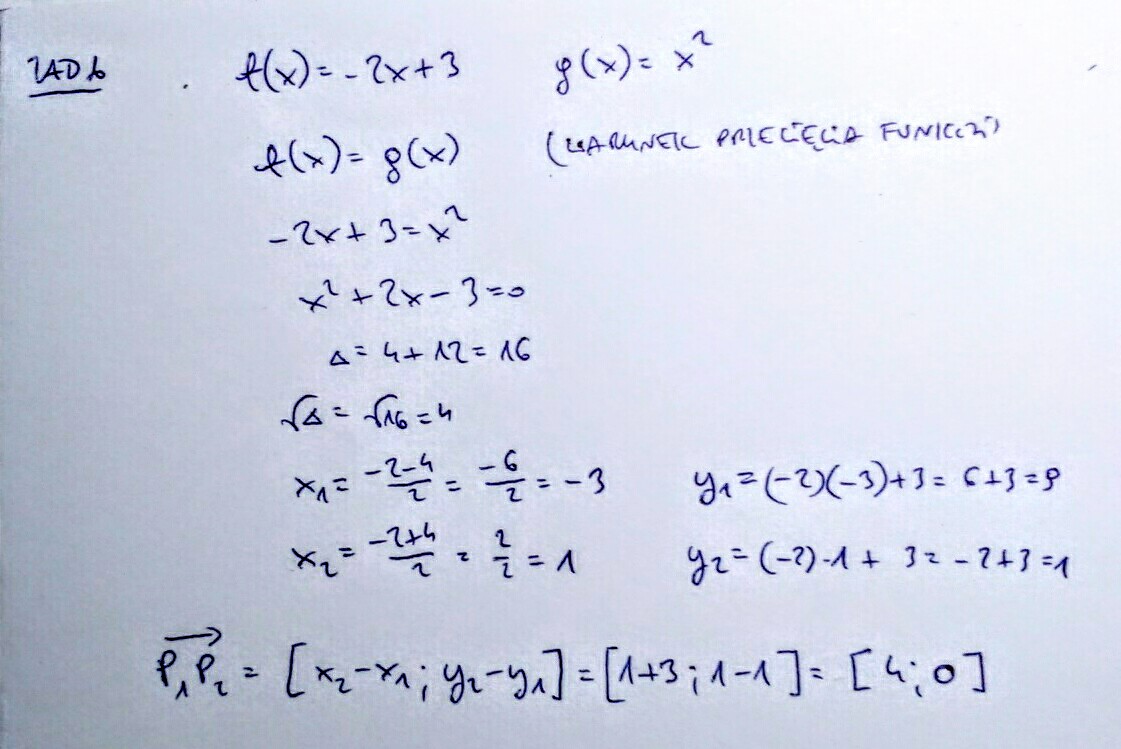 ZAD 6 f(x) = -2x+3 g(x) = x²
f(x) = g(x) (WARUNEK PRZECIĘCIA FUNKCJI)
-2x+3 = x²
x²+2x-3=0
Δ = 4+12 = 16
√Δ = √16 = 4
x₁ = \frac{-2-4}{2} = \frac{-6}{2} = -3 y₁ = (-2)(-3)+3 = 6+3 = 9
x₂ = \frac{-2+4}{2} = \frac{2}{2} = 1 y₂ = (-2)·1 + 3 = -2+3 = 1
\overrightarrow{P₁P₂} = [x₂-x₁; y₂-y₁] = [1+3; 1-1] = [4; 0]